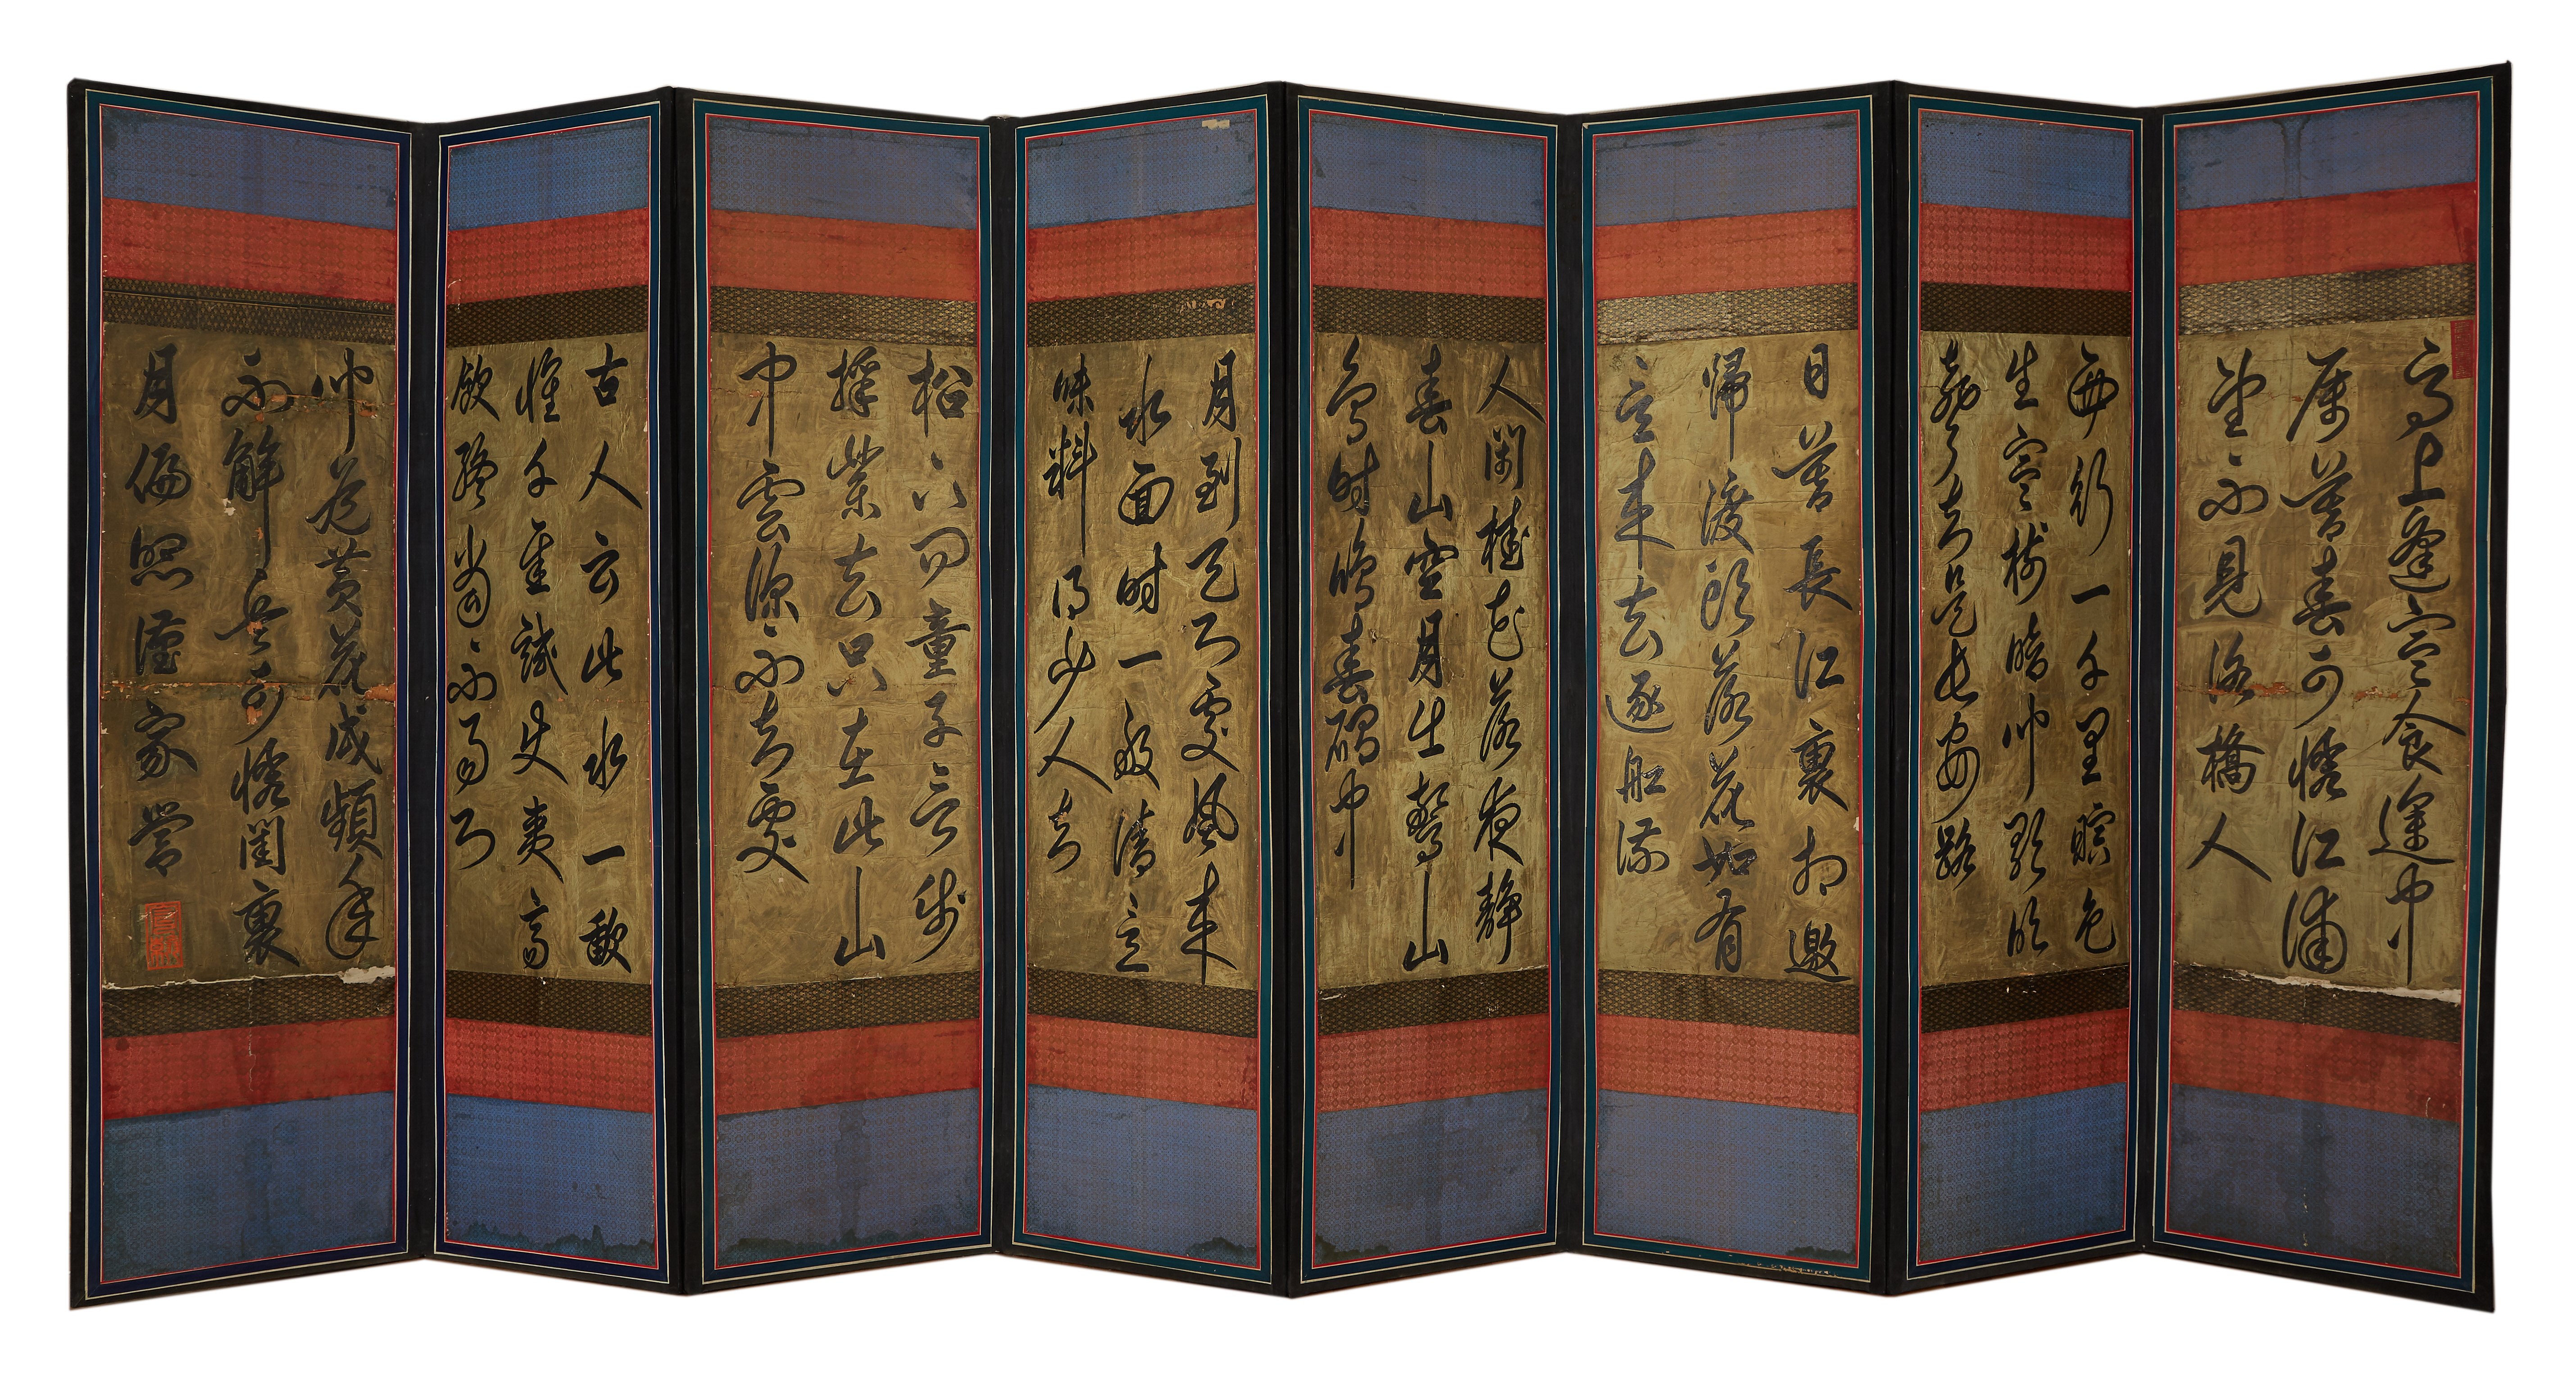 馬上逢寒食途中
屬暮春可憐江浦
望不見洛橋人
西行一千里暝色
生寒樹暗聞歌吹
聲知是長安路
日暮長江裏相邀
歸渡頭落花如有
意來去逐船流
人閒桂花落夜靜
春山空月出驚山
鳥時鳴春磵中
月到天心處風來
水面時一般清意
味料得少人知
松下問童子言師
採藥去只在此山
中雲深不知處
古人云此水一歃
懷千金試使夷齊
飲終當不易心
聞道黃花戍頻年
不解兵可憐閨裏
月偏照漢家營